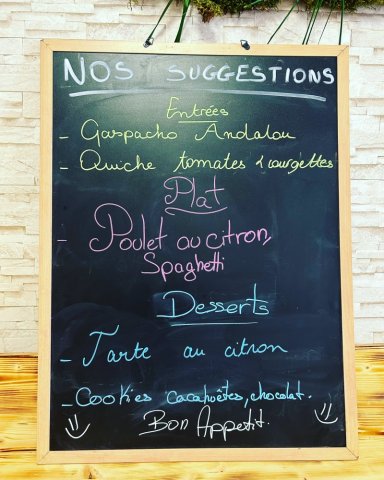 NOS SUGGESTIONS
Entrées
- Gaspacho Andalou
- Quiche tomates & courgettes
Plat
- Poulet au citron,
Spaghetti
Desserts
- Tarte au citron
- Cookies cacahuètes, chocolat.
Bon Appetit.